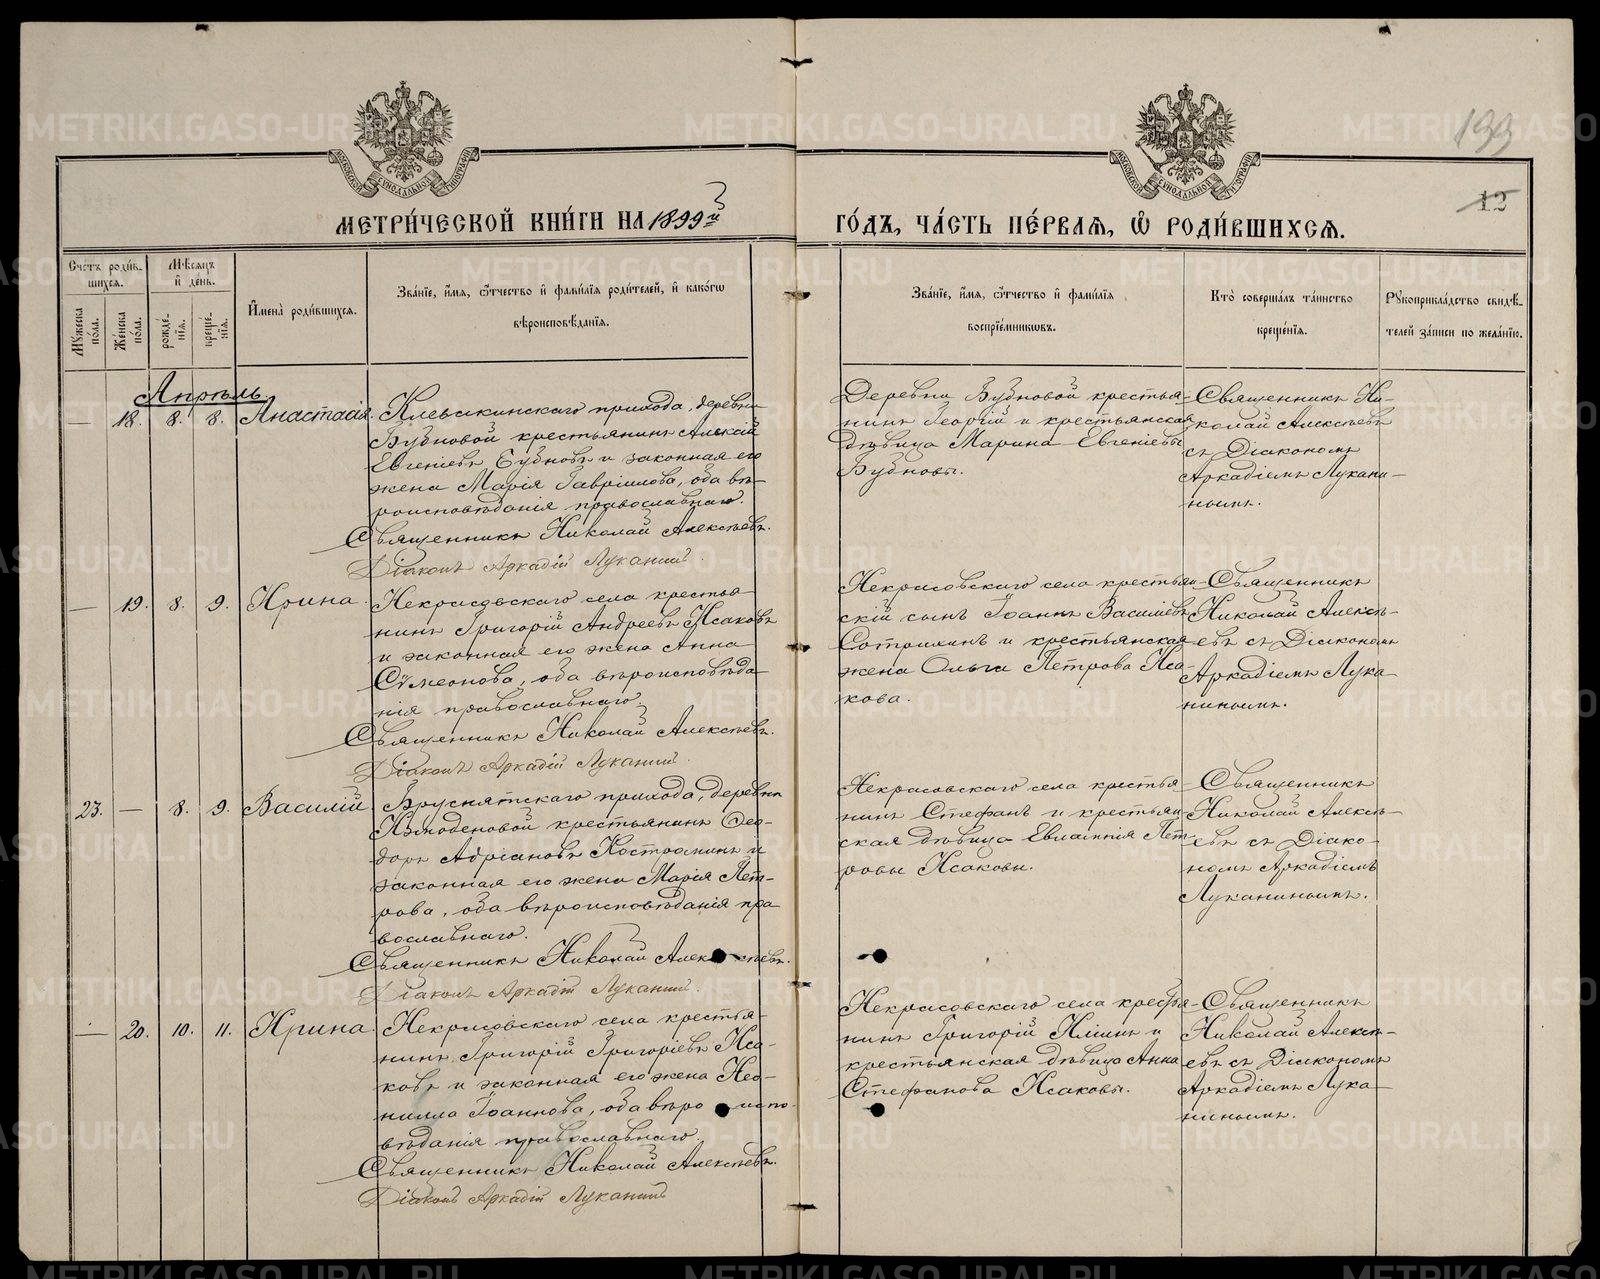 METRIKI.GASO-URAL.RU
193
12
МОСКОВСКОЙ СѴНОДАЛЬНОЙ ТИПОГРАФІИ
МОСКОВСКОЙ СѴНОДАЛЬНОЙ ТИПОГРАФІИ
МЕТРИ́ЧЕСКОЙ КНИ́ГИ НА 1899й ГО́ДЪ, ЧА́СТЬ ПЕ́РВАѦ, Ѽ РОДИ́ВШИХСѦ.
Сче́тъ роди́в-
шихся.
Мѣ́сяцъ
и́ де́нь.
Му́жеска
по́ла.
Же́нска
по́ла.
рожде́-
нїя.
креще́-
нїя.
И҆мена̀ роди́вшихся.
Зва́нїе, и҆́мя, ѻ҆́тчество и҆ фами́лїя роди́телей, и҆ како́гѡ
вѣроисповѣ́данїя.
Зва́нїе, и҆́мя, ѻ҆́тчество и҆ фами́лїя
воспрїе́мниковъ.
Кто̀ соверша́лъ та́инство
креще́нїя.
Рꙋкоприкла́дство свидѣ́-
телей за́писи по жела́нїю.
Апрѣль
— 18. 8. 8. Анастасія
Клевакинскаго прихода, деревни
Бубновой крестьянинъ Алексій
Евгеніевъ Бубновъ и законная его
жена Марія Гавріилова, оба вѣ-
роисповѣданія православнаго.
Священникъ Николай Алексѣевъ.
Діаконъ Аркадій Луканинъ.
Деревни Бубновой крестья-
нинъ Георгій и крестьянская
дѣвица Марина Евгеніевы
Бубновы.
Священникъ Ни-
колай Алексѣевъ
съ Діакономъ
Аркадіемъ Лукани-
нымъ.
— 19. 8. 9. Ирина
Некрасовскаго села крестья-
нинъ Григорій Андреевъ Исаковъ
и законная его жена Анна
Сѵмеонова, оба вѣроисповѣда-
нія православнаго.
Священникъ Николай Алексѣевъ.
Діаконъ Аркадій Луканинъ.
Некрасовскаго села крестьян-
скій сынъ Іоаннъ Василіевъ
и крестьянская
жена Ольга Петрова Иса-
кова.
Священникъ
Николай Алексѣ-
евъ съ Діакономъ
Аркадіемъ Лука-
нинымъ.
23. — 8. 9. Василій
Бруснятскаго прихода, деревни
крестьянинъ Ѳео-
доръ Адріановъ Костроминъ и
законная его жена Марія Пет-
рова, оба вѣроисповѣданія пра-
вославнаго.
Священникъ Николай Алексѣевъ.
Діаконъ Аркадій Луканинъ.
Некрасовскаго села крестья-
нинъ Стефанъ и крестьян-
ская дѣвица Евлампія Пет-
ровы Исаковы.
Священникъ
Николай Алексѣ-
евъ съ Діако-
номъ Аркадіемъ
Луканинымъ.
— 20. 10. 11. Ирина
Некрасовскаго села крестья-
нинъ Григорій Григоріевъ Иса-
ковъ и законная его жена Нео-
нилла Іоаннова, оба вѣроиспо-
вѣданія православнаго.
Священникъ Николай Алексѣевъ.
Діаконъ Аркадій Луканинъ
Некрасовскаго села крестья-
нинъ Григорій Ильинъ и
крестьянская дѣвица Анна
Стефанова Исаковы.
Священникъ
Николай Алексѣ-
евъ съ Діакономъ
Аркадіемъ Лука-
нинымъ.